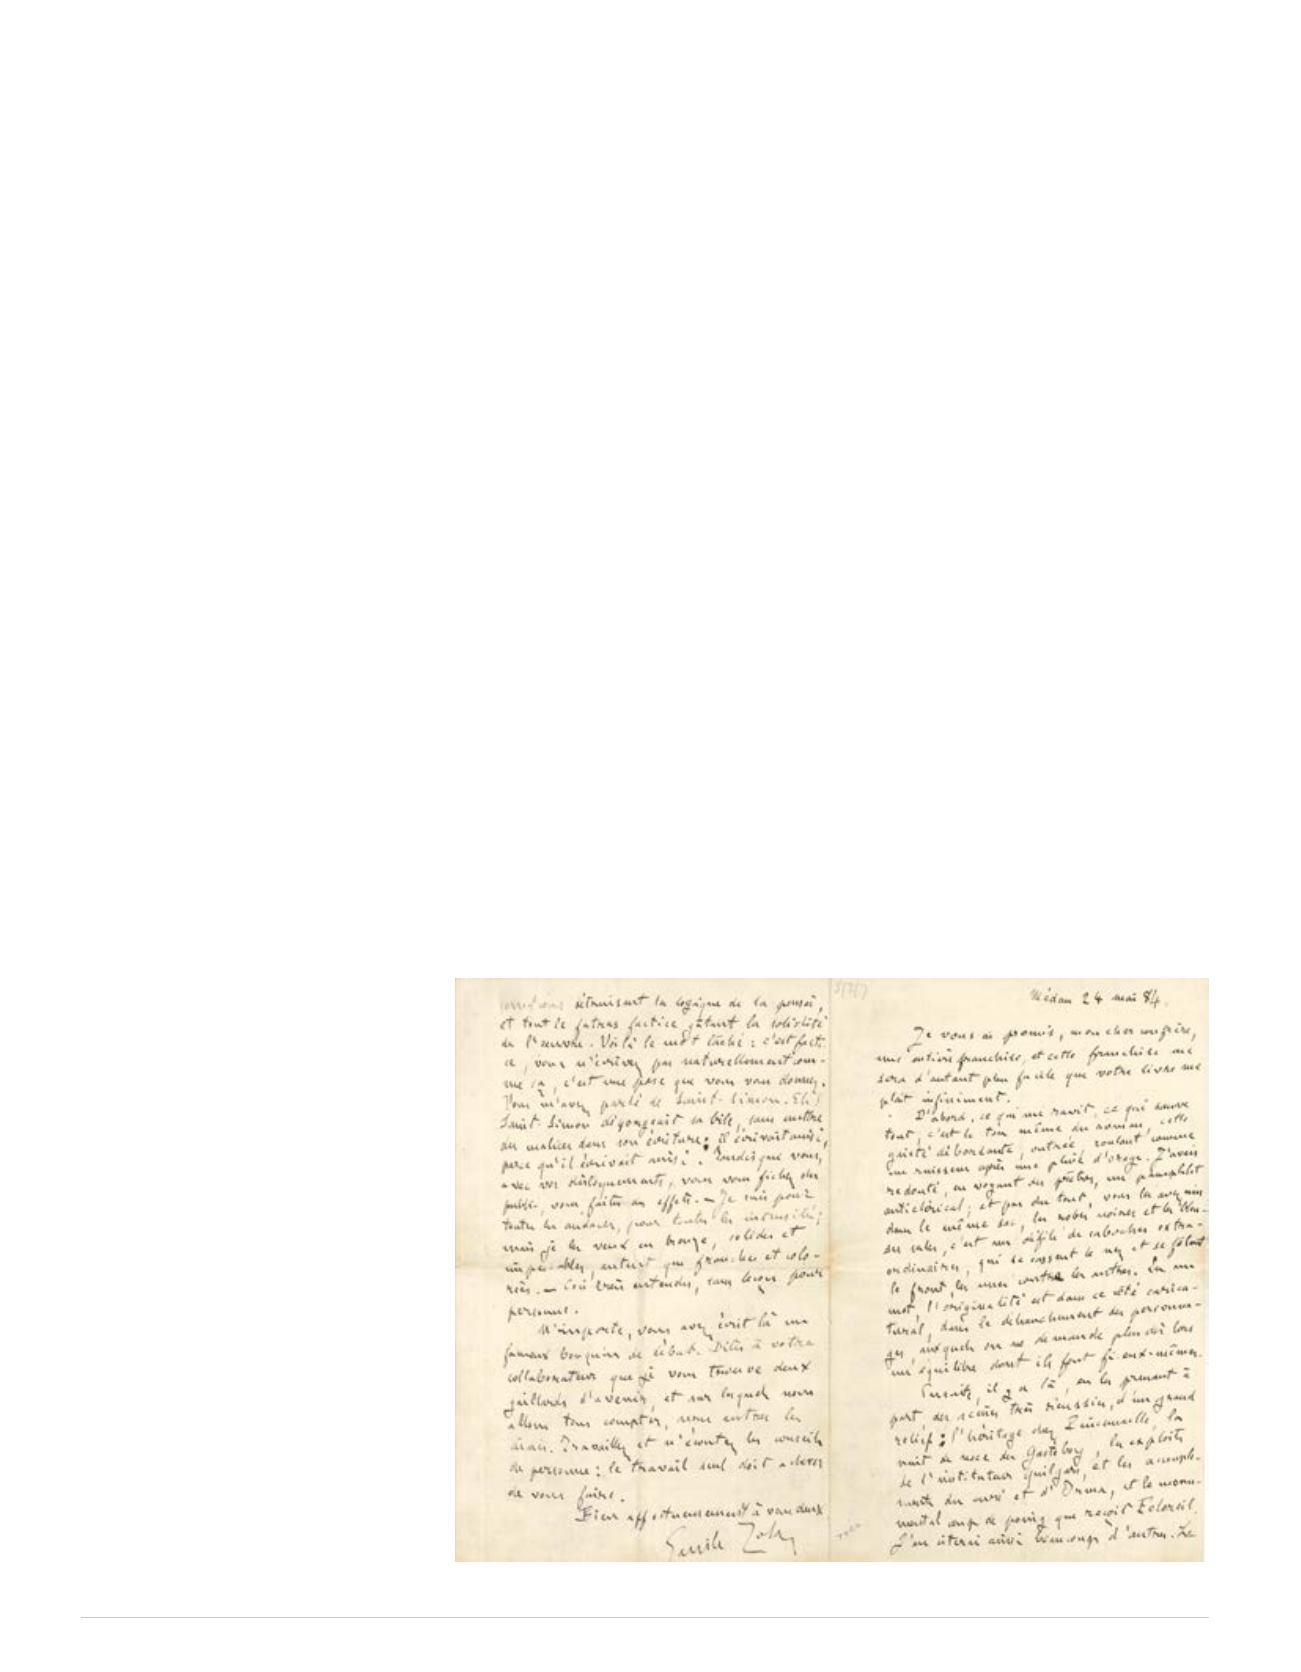 Médan 24 mai 84.
Je vous ai promis, mon cher confrère,
une entière franchise, et cette franchise me
sera d'autant plus facile que votre livre me
plaît infiniment.
D'abord, ce qui me ravit, ce qui sauve
tout, c'est le ton même du roman, cette
gaieté débordante, outrée, roulant comme
un ruisseau après une pluie d'orage. J'avais
redouté, en voyant des prêtres, un pamphlet
anticlérical; et pas du tout, vous les avez mis
dans le même sac, les robes noires et les blou-
ses sales, c'est un défilé de caboches extra-
ordinaires, qui se cassent le nez et se fêlent
le front les unes contre les autres. En un
mot, l'originalité est dans ce côté carica-
tural, dans le déhanchement des personna-
ges, auxquels on ne demande plus dès lors
un équilibre dont ils font fi eux-mêmes.
Ensuite, il y a là, en les prenant à
part des scènes très réussies, d'un grand
relief: l'héritage chez, la
nuit de noce des, les exploits
de l'instituteur, et les accouple-
ments du curé et d', et le monu-
mental coup de poing que reçoit
J'en citerai aussi beaucoup d'autres. Le
détruisant la logique de la pensée,
et tout le fatras factice gâtant la solidité
de l'œuvre. Voilà le mot lâché: c'est facti-
ce, vous n'écrivez pas naturellement com-
me ça, c'est une pose que vous vous donnez.
Vous m'avez parlé de Saint-Simon. Eh!
Saint-Simon dégorgeait sa bile, sans mettre
de malices dans son écriture; il écrivait ainsi,
parce qu'il écrivait ainsi. Tandis que vous,
avec vos, vous vous fichez du
public, vous faites des effets. — Je suis pour
toutes les audaces, pour toutes les intensités;
mais je les veux en bronze, solides et
impeccables, autant que franches et colo-
rées. — Ceci bien entendu, sans leçon pour
personne.
N'importe, vous avez écrit là un
fameux bouquin de début. Dites à votre
collaborateur que je vous trouve deux
gaillards d'avenir, et sur lesquels nous
allons tous compter, nous autres les
aînés. Travaillez et n'écoutez les conseils
de personne: le travail seul doit achever
de vous faire.
Bien affectueusement à vous deux
Emile Zola